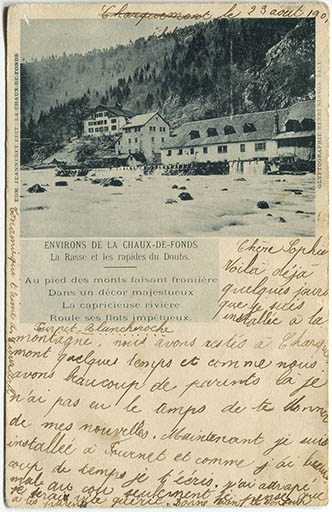 Charquemont le 23 août 190
EDM. JEANNERET EDIT. LA CHAUX-DE-FONDS
ENVIRONS DE LA CHAUX-DE-FONDS
La Rasse et les rapides du Doubs.
Au pied des monts faisant frontière
Dans un décor majestueux
La capricieuse rivière
Roule ses flots impétueux.
Chère Sophie
Voilà déjà
quelques jours
que je suis
installée à la
montagne, nous avons restés à Charq
mont quelque temps et comme nous
avons beaucoup de parents la je
n'ai pas eu le temps de te donner
de mes nouvelles. Maintenant je suis
installée à Fournet et comme j'ai
coup de temps je t'écris.
mal au cou seulement je pense que
se sera
à tes parents